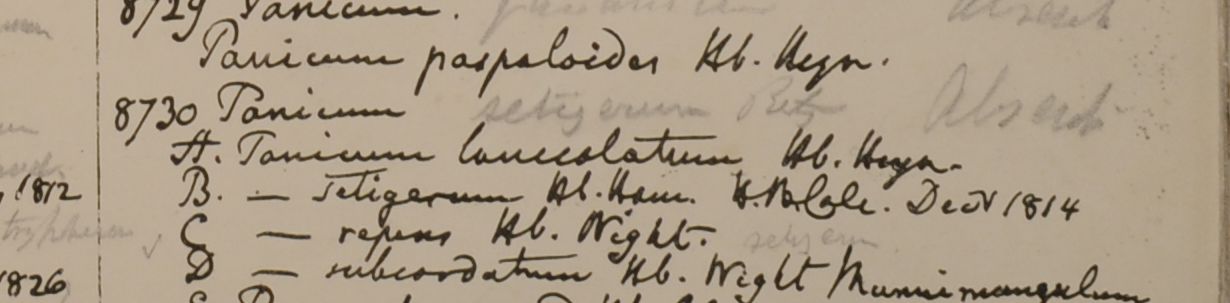 8729 Panicum. Absent
Panicum paspaloides Hb. Heyn.
8730 Panicum setigerum Retz Absent
A. Panicum lanceolatum Hb. Heyn.
B. — setigerum Hb. Ham. H.B. Calc. Decr 1814
, 1812
C — repens Hb. Wight. setigerum
D — subcordatum Hb. Wight
1826